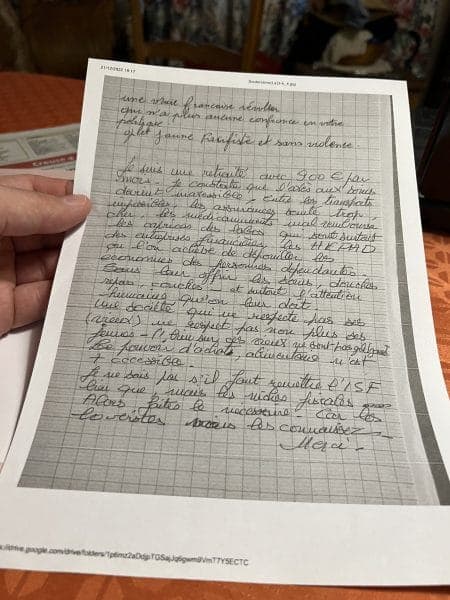 21/12/2022 18:17
une vraie française révoltée
qui n'a plus aucune confiance en votre
politique !
gilet jaune Pacifiste et sans violence.
Je suis une retraitée avec 900 € par
mois - je constate que l'accès aux soins
devient inaccessible. Entre les transports
impossibles, les assurances santé trop
cher, les médicaments mal remboursés
les caprices des labos qui sont surtout
des entreprises financières, les EHPAD
où l'on achève de dépouiller les
économies des personnes dépendantes.
sans leur offrir les soins, douches
repas, couches - et surtout l'attention
humaine qu'on leur doit
une société qui ne respecte pas ses
(vieux) ne respect pas non plus ses
jeunes - bien sur ces vieux ne sont pas
Le pouvoir d'achat, alimentaire n'est
+ accessible.
Je ne sais pas s'il faut remettre l'ISF
bien que, mais les niches fiscales
Alors faites le nécessaire. Car les
vérités vous les connaissez -
Merci.
//drive.google.com/drive/folders/